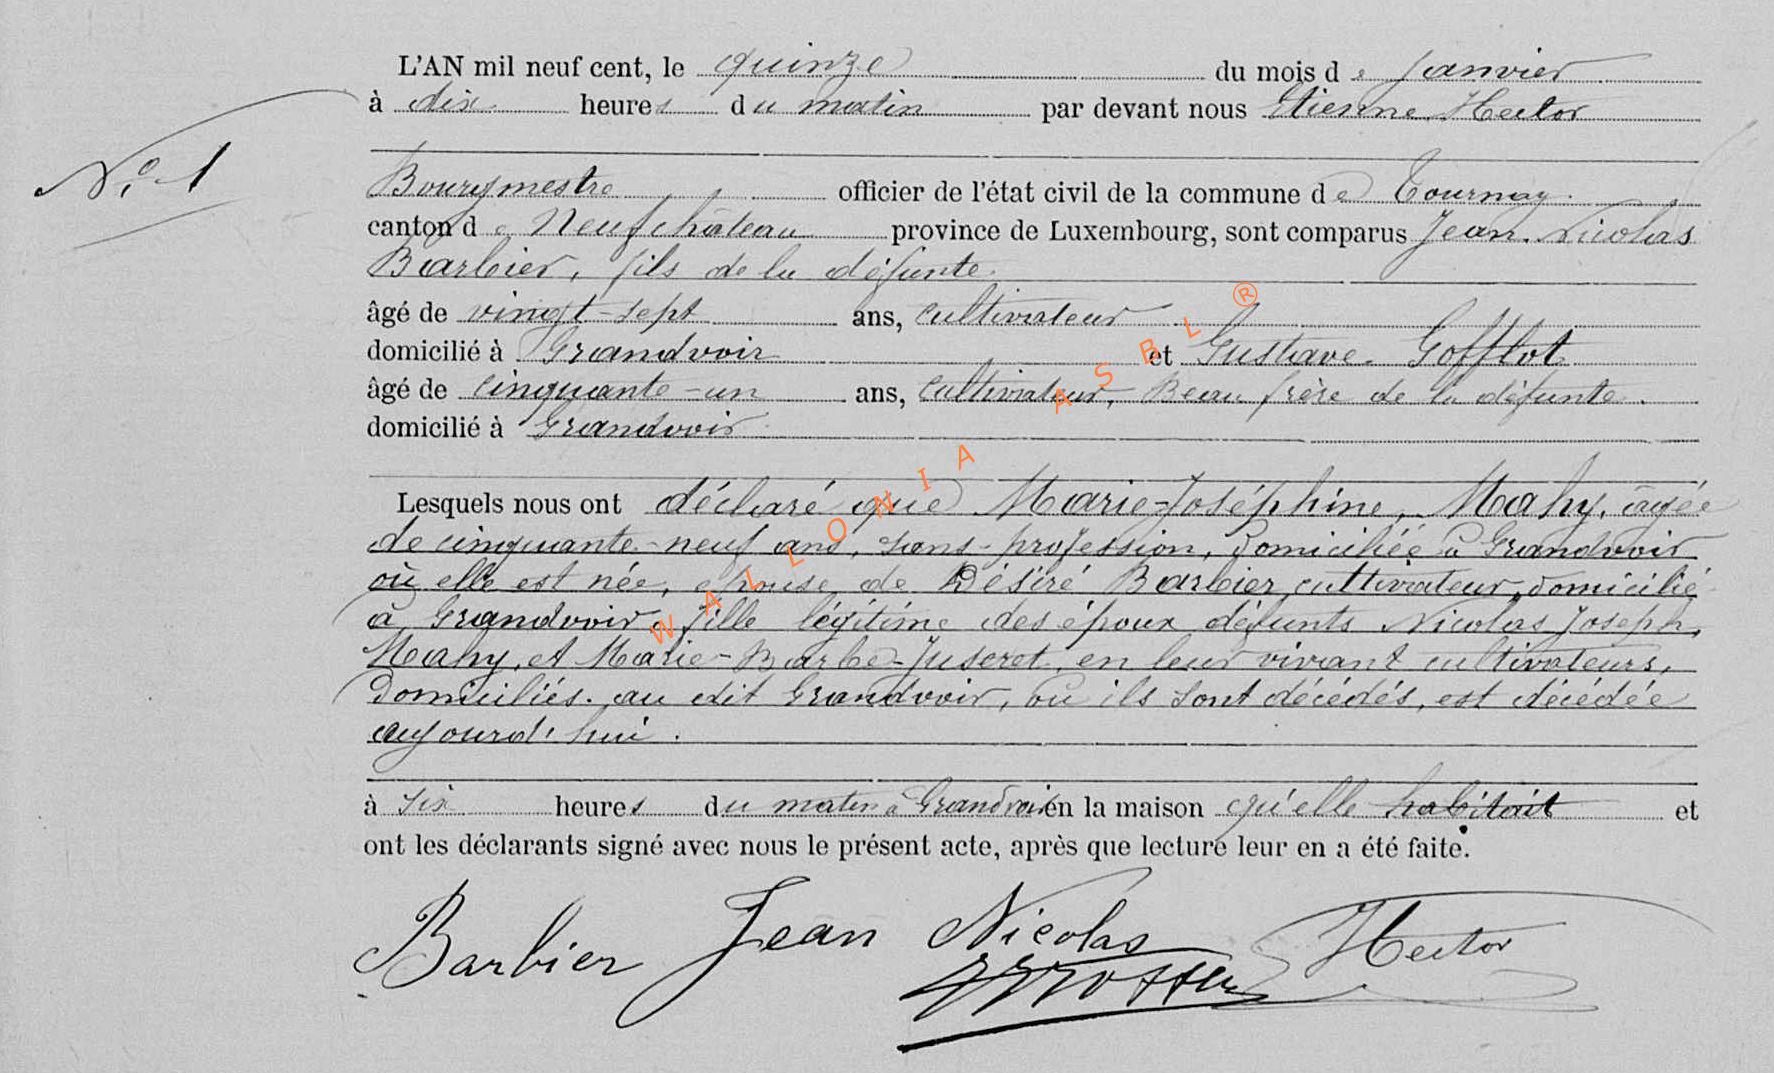 L'AN mil neuf cent, le quinze du mois de Janvier
à dix heures du matin par devant nous Etienne Hector
N° 1
Bourgmestre officier de l'état civil de la commune de Tournay.
canton de Neufchâteau province de Luxembourg, sont comparus Jean Nicolas
Barbier, fils de la défunte.
âgé de vingt-sept ans, cultivateur
domicilié à Grandvoir et Gustave Gofflot
âgé de cinquante-un ans, cultivateur, Beau frère de la défunte.
domicilié à Grandvoir
Lesquels nous ont déclaré que Marie-Joséphine, Mahy, âgée
de cinquante-neuf ans, sans profession, domiciliée à Grandvoir
où elle est née, épouse de Désiré Barbier, cultivateur, domicilié
à Grandvoir, fille légitime des époux défunts Nicolas Joseph,
Mahy, et Marie-Barbe-Juseret, en leur vivant cultivateurs,
domiciliés au dit Grandvoir, où ils sont décédés, est décédée
aujourd'hui.
à six heures du matin à Grandvoir en la maison qu'elle habitait et
ont les déclarants signé avec nous le présent acte, après que lecture leur en a été faite.
Barbier Jean Nicolas Hector
WALLONIA ASBL ®